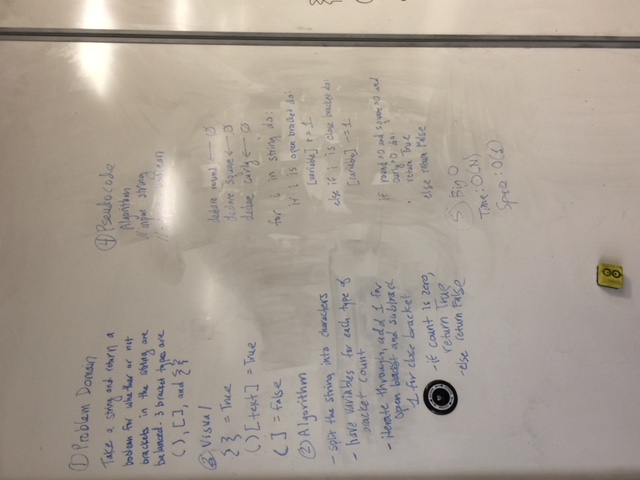 ① Problem Domain
Take a string and return a
boolean for whether or not
brackets in the string are
balanced. 3 bracket types are
( ), [ ], and { }
③ Visual
{ } = True
( ) [text] = True
( ] = false
② Algorithm
- split the string into characters
- have variables for each type of
bracket count
- iterate through, add 1 for
open bracket and subtract
1 for close bracket
- if count is zero,
return True
- else return False
④ Pseudocode
Algorithm
// input string
//
declare round ← 0
declare square ← 0
declare curly ← 0
for i in string do:
if i is open bracket do:
[variable] += 1
else if i is close bracket do:
[variable] -= 1
if round = 0 and square = 0 and
curly = 0 do:
return True
else return False
5) Big O
Time: O(N)
Space: O(1)